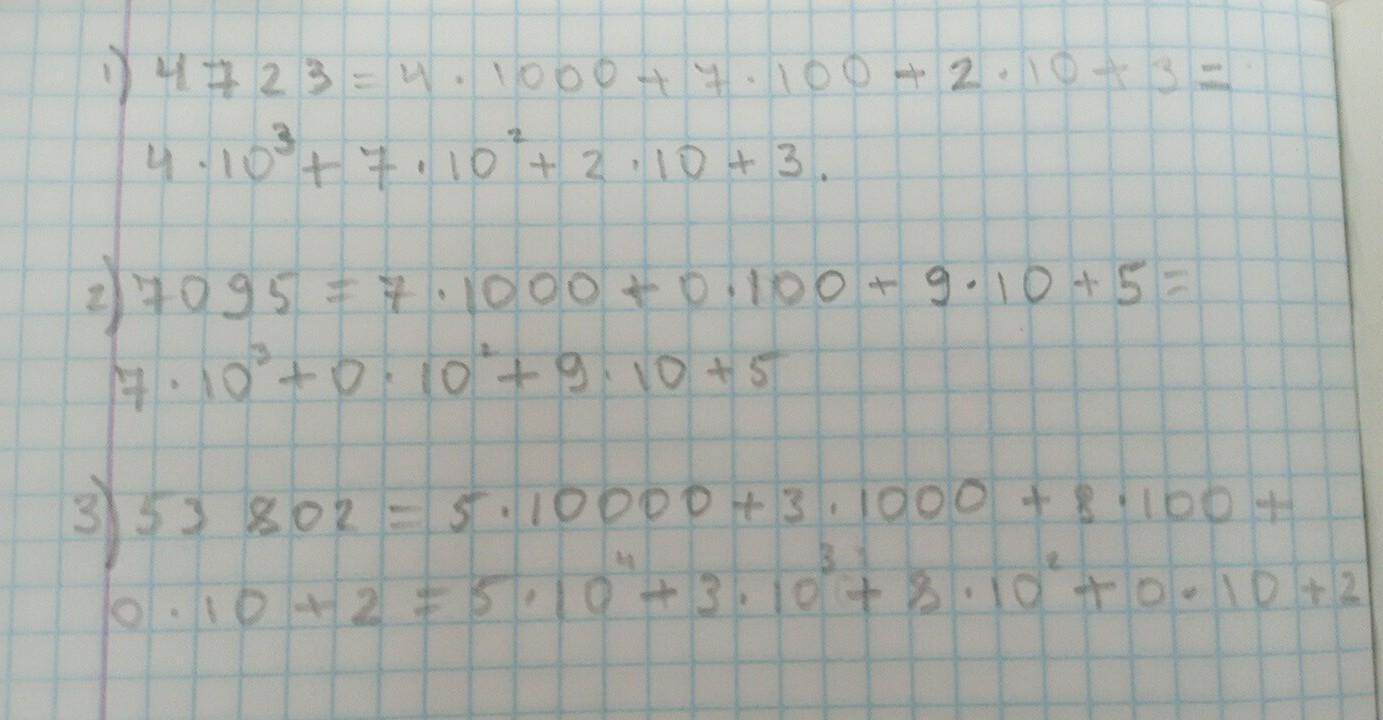 1) 4723 = 4 · 1000 + 7 · 100 + 2 · 10 + 3 =
4 · 10³ + 7 · 10² + 2 · 10 + 3.
2) 7095 = 7 · 1000 + 0 · 100 + 9 · 10 + 5 =
7 · 10³ + 0 · 10² + 9 · 10 + 5
3) 53 802 = 5 · 10000 + 3 · 1000 + 8 · 100 +
0 · 10 + 2 = 5 · 10⁴ + 3 · 10³ + 8 · 10² + 0 · 10 + 2